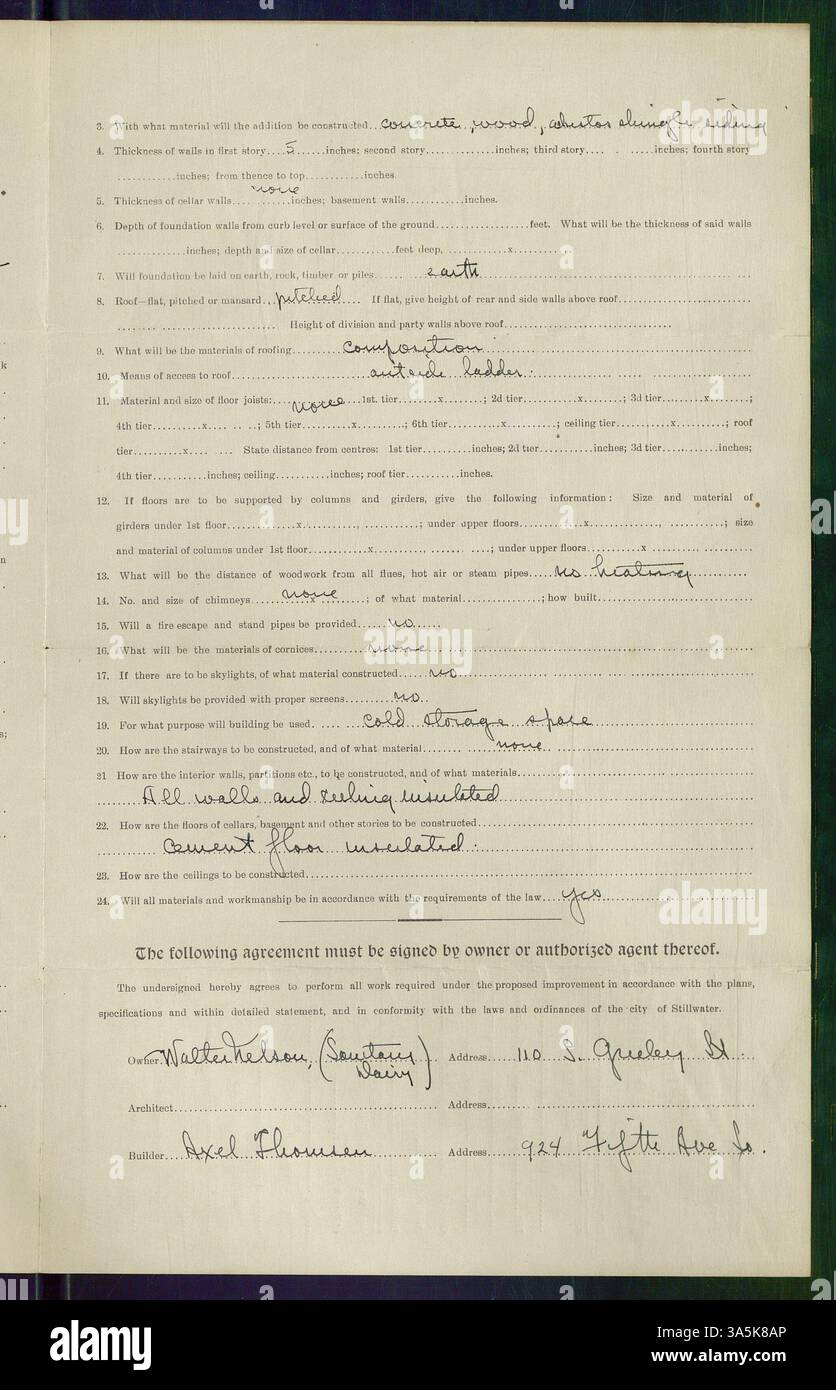 3. With what material will the addition be constructed...concrete, wood, asbestos shingle siding
4. Thickness of walls in first story....5......inches; second story.............inches; third story.... . .....inches; fourth story
............inches; from thence to top............inches.
5. Thickness of cellar walls....none.......inches; basement walls............inches.
6. Depth of foundation walls from curb level or surface of the ground...................feet. What will be the thickness of said walls
..............inches; depth and size of cellar............feet deep, ............x............
7. Will foundation be laid on earth, rock, timber or piles...... ......earth..............................
8. Roof—flat, pitched or mansard...pitched.... If flat, give height of rear and side walls above roof............................
....... ......................... Height of division and party walls above roof...................................
9. What will be the materials of roofing..........composition..............................
10. Means of access to roof............................outside ladder.............................
11. Material and size of floor joists:....none....1st. tier........x........; 2d tier..........x........; 3d tier........x.......;
4th tier..........x...... .. ..; 5th tier..........x.........; 6th tier..........x...........; ceiling tier.........x.........; roof
tier..........x.... .... State distance from centres: 1st tier...........inches; 2d tier...........inches; 3d tier...........inches;
4th tier...........inches; ceiling...........inches; roof tier...........inches.
12. If floors are to be supported by columns and girders, give the following information: Size and material of
girders under 1st floor..............x..........., ............; under upper floors..............x............, .............; size
and material of columns under 1st floor............x..........., ....... ....; under upper floors...........x ........, ..........
13. What will be the distance of woodwork from all flues, hot air or steam pipes.....no heating...........
14. No. and size of chimneys ......none.......x..........; of what material...............; how built..............................
15. Will a fire escape and stand pipes be provided......no......
16. What will be the materials of cornices........none....................
17. If there are to be skylights, of what material constructed......no....................
18. Will skylights be provided with proper screens.........no..
19. For what purpose will building be used. .... .....cold storage space..............................
20. How are the stairways to be constructed, and of what material....... ........none..............................
21 How are the interior walls, partitions etc., to be constructed, and of what materials..............................
......All walls and ceiling insulated..............................
22. How are the floors of cellars, basement and other stories to be constructed..............................
.............cement floor insulated..............................
23. How are the ceilings to be constructed..............................
24. Will all materials and workmanship be in accordance with the requirements of the law....yes....................
The following agreement must be signed by owner or authorized agent thereof.
The undersigned hereby agrees to perform all work required under the proposed improvement in accordance with the plans,
specifications and within detailed statement, and in conformity with the laws and ordinances of the city of Stillwater.
Owner Walter Nelson, (Sanitary Dairy) Address...110 S. Greeley St.
Architect.............................. Address..............................
Builder....Axel Thomsen.............. Address........924 Fifth Ave So.
alamy
Image ID: 3A5K8AP
www.alamy.com